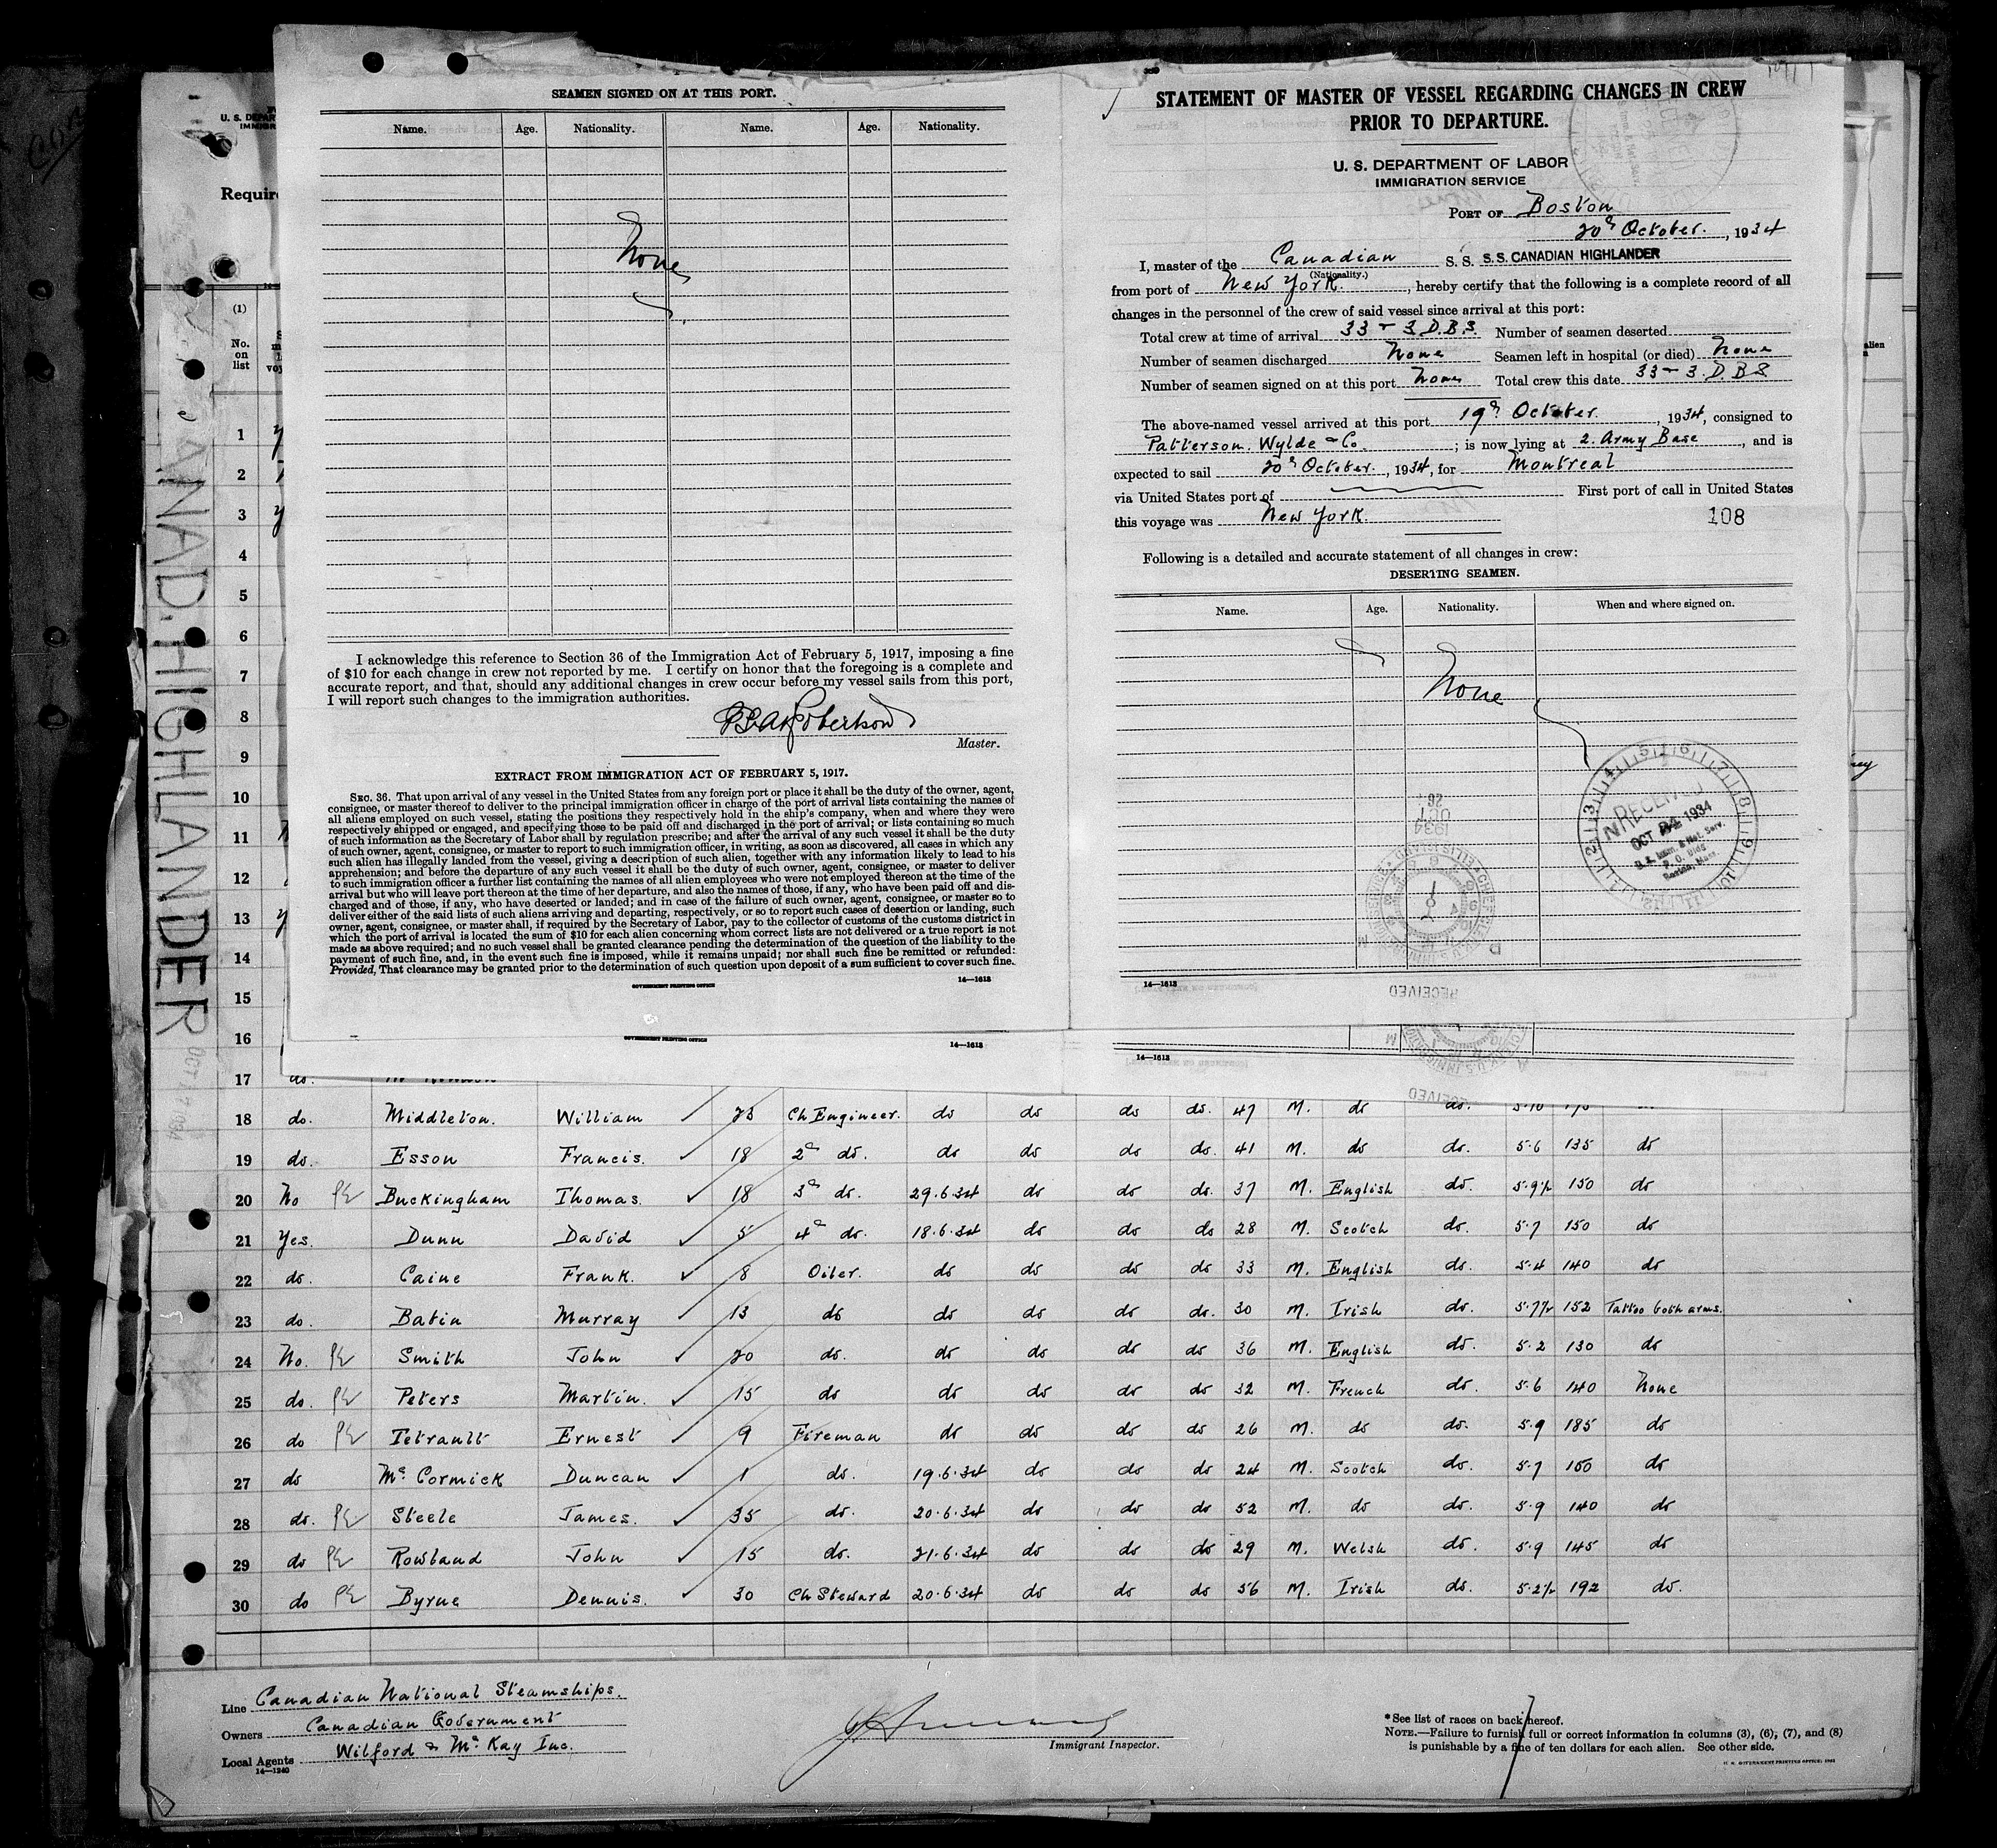 SEAMEN SIGNED ON AT THIS PORT.
Name. Age. Nationality. Name. Age. Nationality.
None
I acknowledge this reference to Section 36 of the Immigration Act of February 5, 1917, imposing a fine
of $10 for each change in crew not reported by me. I certify on honor that the foregoing is a complete and
accurate report, and that, should any additional changes in crew occur before my vessel sails from this port,
I will report such changes to the immigration authorities.
Robertson
Master.
EXTRACT FROM IMMIGRATION ACT OF FEBRUARY 5, 1917.
SEC. 36. That upon arrival of any vessel in the United States from any foreign port or place it shall be the duty of the owner, agent,
consignee, or master thereof to deliver to the principal immigration officer in charge of the port of arrival lists containing the names of
all aliens employed on such vessel, stating the positions they respectively hold in the ship's company, when and where they were
respectively shipped or engaged, and specifying those to be paid off and discharged in the port of arrival; or lists containing so much
of such information as the Secretary of Labor shall by regulation prescribe; and after the arrival of any such vessel it shall be the duty
of such owner, agent, consignee, or master to report to such immigration officer, in writing, as soon as discovered, all cases in which any
such alien has illegally landed from the vessel, giving a description of such alien, together with any information likely to lead to his
apprehension; and before the departure of any such vessel it shall be the duty of such owner, agent, consignee, or master to deliver
to such immigration officer a further list containing the names of all alien employees who were not employed thereon at the time of the
arrival but who will leave port thereon at the time of her departure, and also the names of those, if any, who have been paid off and dis-
charged and of those, if any, who have deserted or landed; and in case of the failure of such owner, agent, consignee, or master so to
deliver either of the said lists of such aliens arriving and departing, respectively, or so to report such cases of desertion or landing, such
owner, agent, consignee, or master shall, if required by the Secretary of Labor, pay to the collector of customs of the customs district in
which the port of arrival is located the sum of $10 for each alien concerning whom correct lists are not delivered or a true report is not
made as above required; and no such vessel shall be granted clearance pending the determination of the question of the liability to the
payment of such fine, and, in the event such fine is imposed, while it remains unpaid; nor shall such fine be remitted or refunded:
Provided, That clearance may be granted prior to the determination of such question upon deposit of a sum sufficient to cover such fine.
GOVERNMENT PRINTING OFFICE 14—1613
GOVERNMENT PRINTING OFFICE 14—1613
STATEMENT OF MASTER OF VESSEL REGARDING CHANGES IN CREW
PRIOR TO DEPARTURE.
U. S. DEPARTMENT OF LABOR
IMMIGRATION SERVICE
PORT OF Boston
20th October, 1934
I, master of the Canadian S. S. S.S. CANADIAN HIGHLANDER
(Nationality.)
from port of New York, hereby certify that the following is a complete record of all
changes in the personnel of the crew of said vessel since arrival at this port:
Total crew at time of arrival 33 - 3 D.B.S. Number of seamen deserted
Number of seamen discharged None Seamen left in hospital (or died) None
Number of seamen signed on at this port None Total crew this date 33 - 3 D.B.S
The above-named vessel arrived at this port 19th October, 1934, consigned to
Patterson, Wylde & Co; is now lying at 2. Army Base, and is
expected to sail 20th October, 1934, for Montreal
via United States port of First port of call in United States
this voyage was New York.
108
Following is a detailed and accurate statement of all changes in crew:
DESERTING SEAMEN.
Name. Age. Nationality. When and where signed on.
None
RECEIVED
OCT 1934
U. S. Imm. & Nat. Serv.
P. O. Bldg
Boston, Mass
OCT 1934
RECEIVED
14—1613
14—1613
CANAD. HIGHLANDER
Require
(1)
No. on list
1
2
3
4
5
6
7
8
9
10
11
12
13
14
15
16
17 do.
18 do. Middleton. William 23 Ch Engineer. do do do do. 47 M. do do. 5.10
19 do. Esson Francis. 18 2d do. do do do do. 41 M. do do. 5.6 135 do
20 No PE Buckingham Thomas. 18 3d do. 29.6.34 do do do. 37 M. English do. 5.9½ 150 do
21 Yes. Dunn David 5 4th do. 18.6.34 do do do 28 M. Scotch do. 5.7 150 do
22 do. Caine Frank. 8 Oiler. do do do do 33 M. English do. 5.4 140 do
23 do. Batin Murray 13 do do do do do. 30 M. Irish do. 5.7½ 152 Tattoo both arms.
24 No. PE Smith John 20 do. do do do do 36 M. English do. 5.2 130 do
25 do. PE Peters Martin. 15 do do do do do 32 M. French do. 5.6 140 None
26 do PE Tetrault Ernest 9 Fireman do do do do 26 M. do do. 5.9 185 do
27 do McCormick Duncan 1 do. 19.6.34 do do do 24 M. Scotch do. 5.7 160 do
28 do. PE Steele James. 35 do. 20.6.34 do do do 52 M. do do. 5.9 140 do
29 do PE Rowland John 15 do. 21.6.34 do do do 29 M. Welsh do. 5.9 145 do
30 do PE Byrne Dennis. 30 Ch Steward 20.6.34 do do do 56 M. Irish do. 5.2½ 192 do.
Line Canadian National Steamships.
Owners Canadian Government
Local Agents Wilford & McKay Inc.
14—1240
Immigrant Inspector.
*See list of races on back hereof.
NOTE.—Failure to furnish full or correct information in columns (3), (6), (7), and (8)
is punishable by a fine of ten dollars for each alien. See other side.